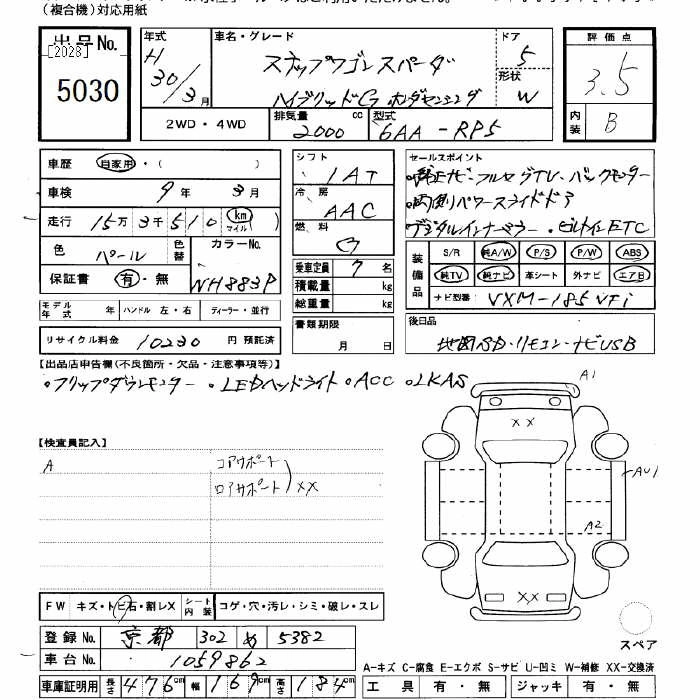 (複合機)対応用紙
出品No.
[2028]
5030
年式
H
30/3月
車名・グレード
ステップワゴンスパーダ
ハイブリッドG ホンダセンシング
ドア
5
形状
W
2WD・4WD
排気量 cc
2000
型式
6AA-RP5
評価点
3.5
内装
B
車歴 自家用・( )
車検 9年 3月
走行 15万3千510 km マイル
色 パール 色替 カラーNo.
保証書 有・無 NH883P
モデル年式 年 ハンドル 左・右 ディーラー・並行
リサイクル料金 10230 円 預託済
シフト
1AT
冷房
AAC
燃料
乗車定員 7名
積載量 kg
総重量 kg
書類期限
月 日
セールスポイント
・純正ナビ・フルセグTV・バックモニター
・両側パワースライドドア
・デジタルインナーミラー ・ビルトインETC
装備品
S/R 純A/W P/S P/W ABS
純TV 純ナビ 革シート 外ナビ エアB
ナビ型番 VXM-185VFi
後日品
地図SD・リモコン・ナビUSB
【出品店申告欄(不良箇所・欠品・注意事項等)】
・フリップダウンモニター ・LEDヘッドライト ・ACC ・LKAS
【検査員記入】
A
コアサポート
ロアサポート ) XX
A1
XX
AU1
A2
XX
スペア
FW キズ・トビ石・割レX シート内装 コゲ・穴・汚レ・シミ・破レ・スレ
登録No. 京都 302 め 5382
車台No. 1059862
車庫証明用 長さ 476cm 幅 169cm 高さ 184cm
A-キズ C-腐食 E-エクボ S-サビ U-凹ミ W-補修 XX-交換済
工具 有・無 ジャッキ 有・無